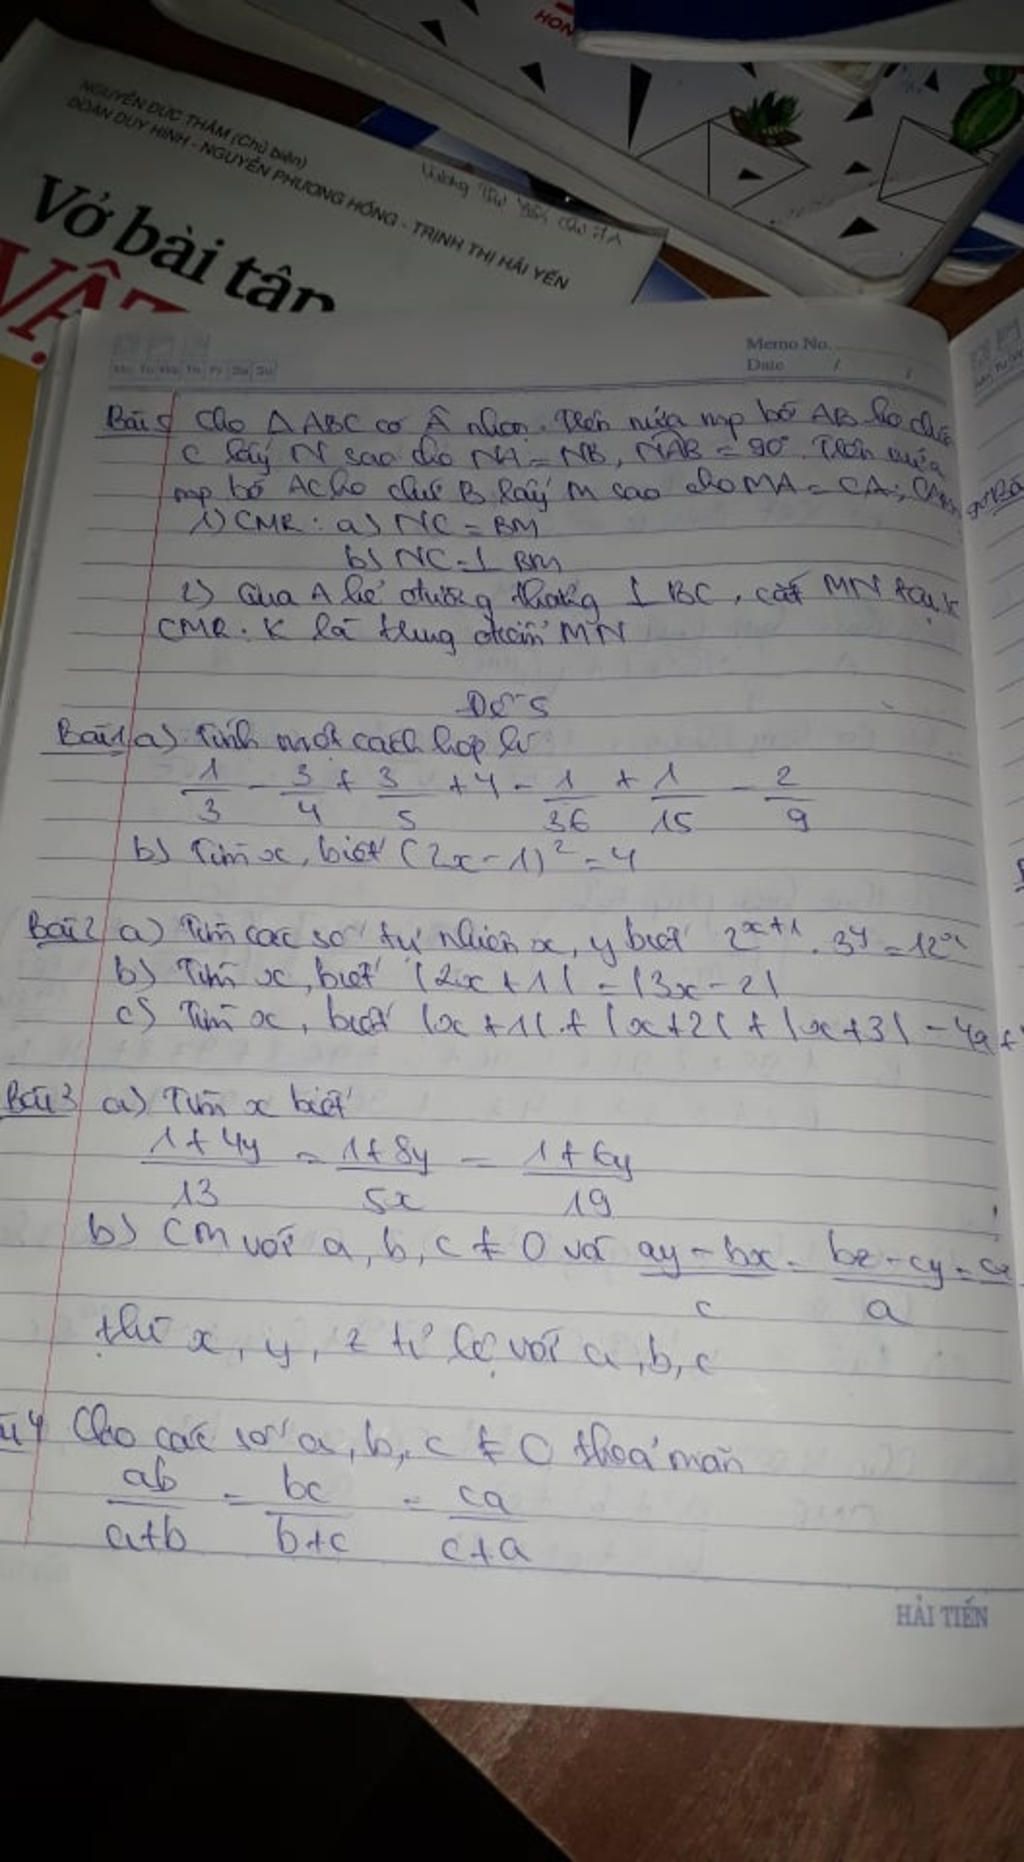 HON
NGUYỄN ĐỨC THÂM (Chủ biên)
ĐOÀN DUY HINH - NGUYỄN PHƯƠNG HỒNG - TRỊNH THỊ HẢI YẾN
Vở bài tập
VẬT
Memo No.
Date / /
Bài 5 Cho △ABC có Â nhọn. Trên nửa mp bờ AB ko chứa
C lấy N sao cho NA = NB, NAB = 90°. Trên nửa
mp bờ AC ko chứa B lấy M sao cho MA = CA;
1) CMR: a) NC = BM
b) NC ⊥ BM
2) Qua A kẻ đường thẳng ⊥ BC, cắt MN tại K
CMR: K là trung điểm MN
Đề 5
Bài 1 a) Tính một cách hợp lí
1/3 - 3/4 + 3/5 + 4 - 1/36 + 1/15 - 2/9
b) Tìm x, biết (2x - 1)² = 4
Bài 2 a) Tìm các số tự nhiên x, y biết 2^(x+1) . 3^y = 12^x
b) Tìm x, biết |2x + 1| = |3x - 2|
c) Tìm x, biết |x + 1| + |x + 2| + |x + 3| = 4x +
Bài 3 a) Tìm x biết
1 + 4y/13 = 1 + 8y/5x = 1 + 6y/19
b) CM với a, b, c ≠ 0 và ay - bx/c = bz - cy/a =
thì x, y, z tỉ lệ với a, b, c
4 Cho các số a, b, c ≠ 0 thoả mãn
ab/a+b = bc/b+c = ca/c+a
HẢI TIẾN